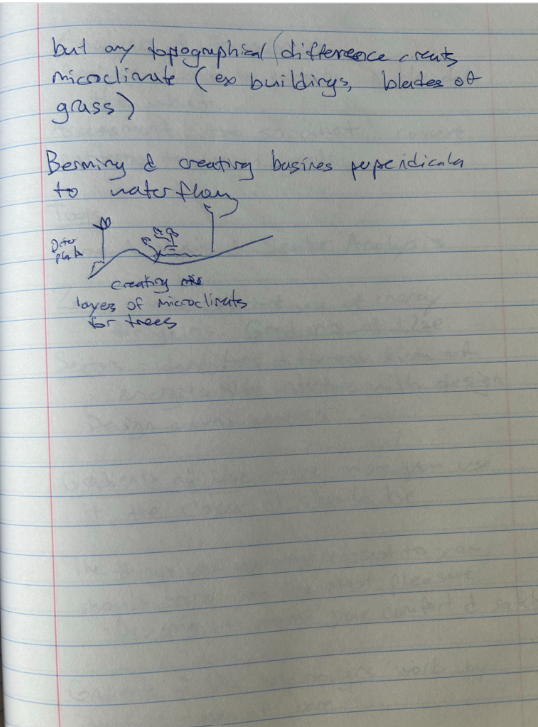 but any topographical difference creats
microclimate (ex buildings, blades of
grass)
Berming & creating basines perpendicular
to waterflow
creating
layers of microclimates
for trees